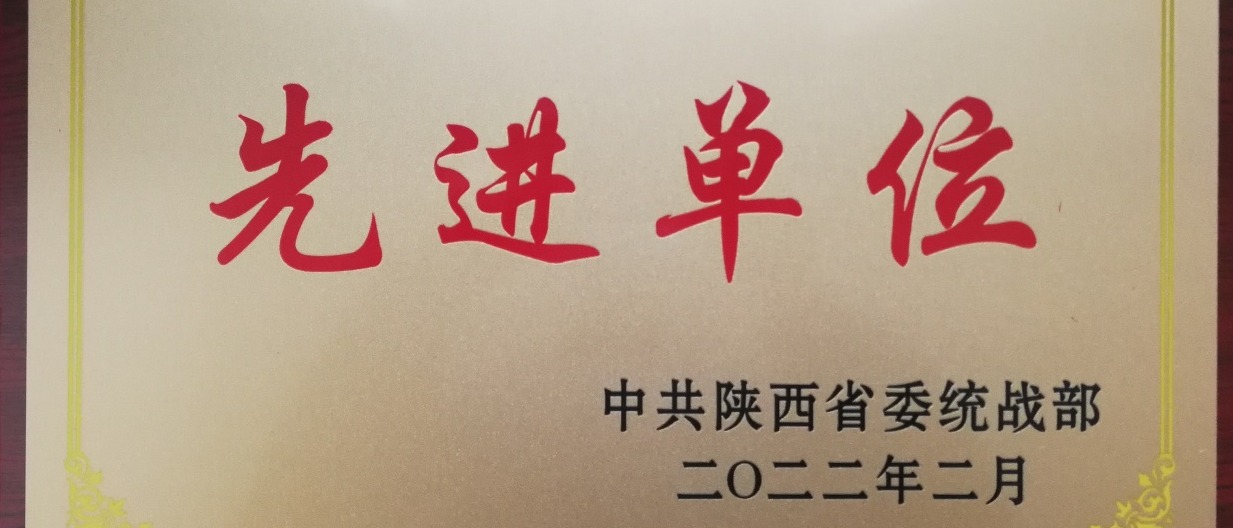 先进单位
中共陕西省委统战部
二〇二二年二月